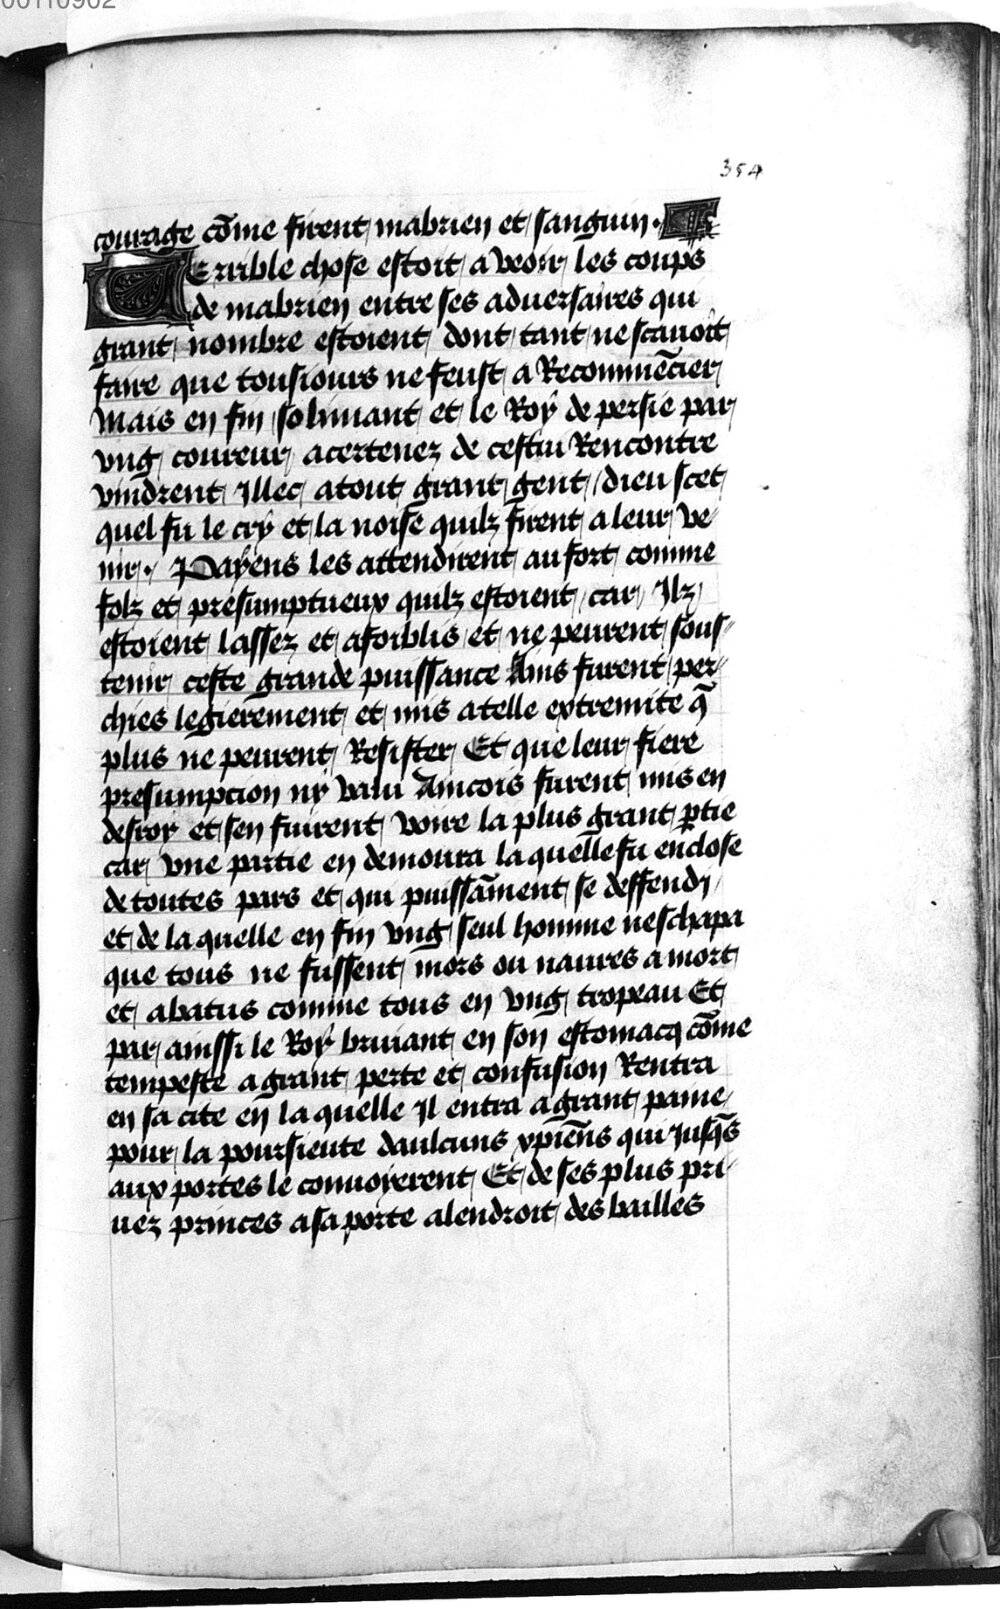 00110902
354
courage cōme firent mabrien et sanguin.
Terrible chose estoit a veoir les coups
de mabrien entre ses aduersaires qui
grant nombre estoient dont tant ne scauoit
faire que tousiours ne feust a Recommēcier
Mais en fin solimant et le Roy de persie par
vng coureur acertenez de cestui Rencontre
vindrent Illec atout grant gent / dieu scet
quel fu le cry et la noise quilz firent a leur ve-
nir. Payens les attendirent au fort comme
folz et presumptueux quilz estoient / car Ilz
estoient lassez et afoiblis et ne peurent sous-
tenir ceste grande puissance Ains furent per-
chies legierement et mis a telle extremite q̄
plus ne peurent Resister Et que leur fiere
presumpcion ny valu Aincois furent mis en
desroy et sen fuirent voire la plus grant ꝑtie
car vne partie en demoura la quelle fu enclose
de toutes pars et qui puissāment se deffendy
et de la quelle en fin vng seul homme neschapa
que tous ne fussent mors ou naures a mort
et abatus comme tous en vng tropeau Et
par ainssi le Roy bruiant en son estomacq cōme
tempeste a grant perte et confusion Rentra
en sa cite en la quelle Il entra a grant paine
pour la poursieute daulcuns xpiēns qui Jusq̄s
aux portes le conuoyerent Et de ses plus pri-
uez princes a sa porte alendroit des bailles